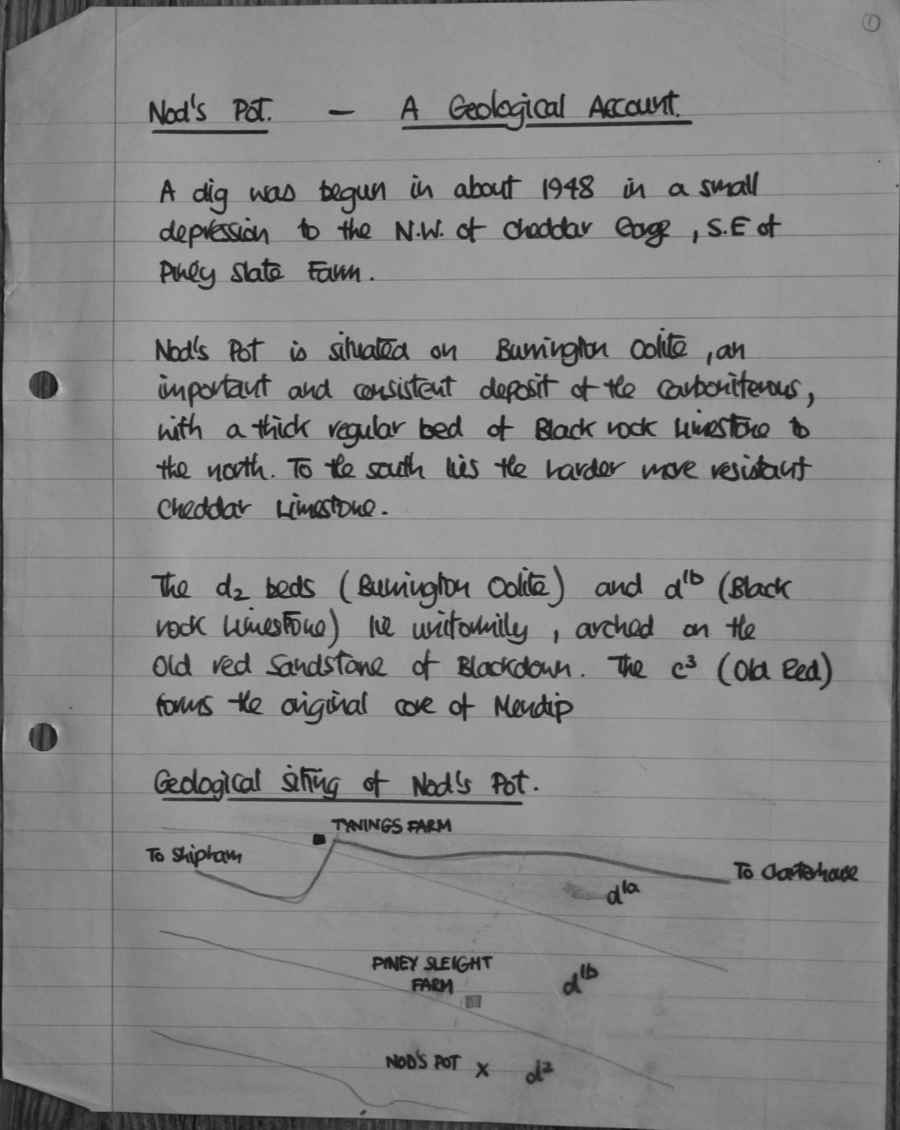 1
Nod's Pot. — A Geological Account.
A dig was begun in about 1948 in a small
depression to the N.W. of Cheddar Gorge, S.E of
Piney Slate Farm.
Nod's Pot is situated on Burrington Oolite, an
important and consistent deposit of the Carboniferous,
with a thick regular bed of Black rock Limestone to
the north. To the south lies the harder more resistant
Cheddar Limestone.
The d2 beds (Burrington Oolite) and d1b (Black
rock Limestone) lie uniformily, arched on the
Old red Sandstone of Blackdown. The c3 (Old Red)
forms the original core of Mendip
Geological Siting of Nod's Pot.
TYNINGS FARM
To Shipham
To Charterhouse
d1a
PINEY SLEIGHT
FARM
d1b
NOD'S POT X d2